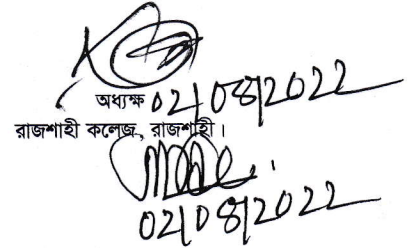 অধ্যক্ষ 02/08/2022
রাজশাহী কলেজ, রাজশাহী।
02/08/2022